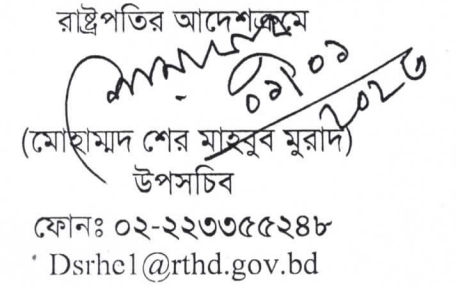 রাষ্ট্রপতির আদেশক্রমে
০৯/০১
২০২৩
(মোহাম্মদ শের মাহবুব মুরাদ)
উপসচিব
ফোনঃ ০২-২২৩৩৫৫২৪৮
Dsrhc1@rthd.gov.bd